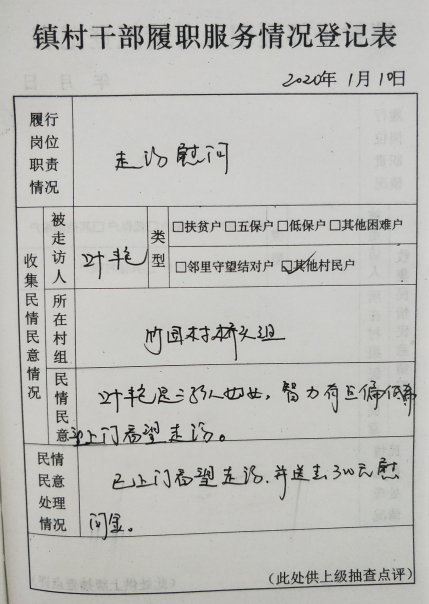 镇村干部履职服务情况登记表
2020年1月10日
履行
岗位
职责
情况
走访慰问
收集民情民意情况
被走访人
叶艳
类型
□扶贫户□五保户□低保户□其他困难户
□邻里守望结对户☑其他村民户
所在村组
竹园村桥头组
民情民意
叶艳是二孩妇女，智力有点偏低希
望上门看望走访。
民情
民意
处理
情况
已上门看望走访，并送去300元慰
问金。
(此处供上级抽查点评)